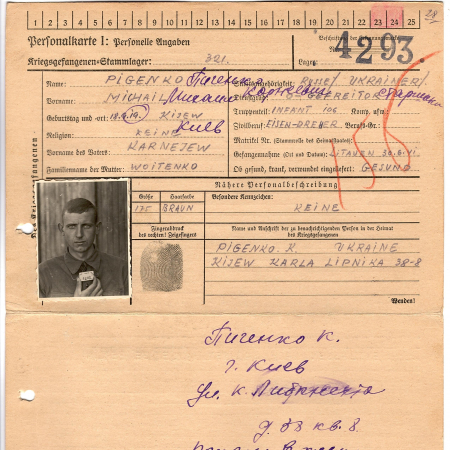 1 2 3 4 5 6 7 8 9 10 11 12 13 14 15 16 17 18 19 20 21 22 23 24 25
Personalkarte I: Personelle Angaben
Kriegsgefangenen-Stammlager: 321.
Lager: 4293.
Name: PIGENKO Пиченко
Staatsangehörigkeit: RUSSE/ UKRAINER/
Vorname: MICHAIL Михаил Карнеевич
Dienstgrad: GEFREITOR
Geburtstag und -ort: KIJEW Киев
Truppenteil: INFANT 106 Komp. usw.:
Religion: KEINE
Zivilberuf: EISEN-DREHER Berufs-Gr.:
Vorname des Vaters: KARNEJEW
Matrikel Nr. (Stammrolle des Heimatstaates):
Gefangennahme (Ort und Datum): LITAUEN 30.6.41
Familienname der Mutter: WOITENKO
Ob gesund, krank, verwundet eingeliefert: GESUND
Nähere Personalbeschreibung
Größe Haarfarbe Besondere Kennzeichen:
175 BRAUN KEINE
Fingerabdruck
des rechten! Zeigefingers
Name und Anschrift der zu benachrichtigenden Person in der Heimat
des Kriegsgefangenen
PIGENKO. K. UKRAINE
KIJEW KARLA LIPNIKA 38-8
Wenden!
Пиченко К.
г. Киев
ул. К.
д. 38 кв. 8.